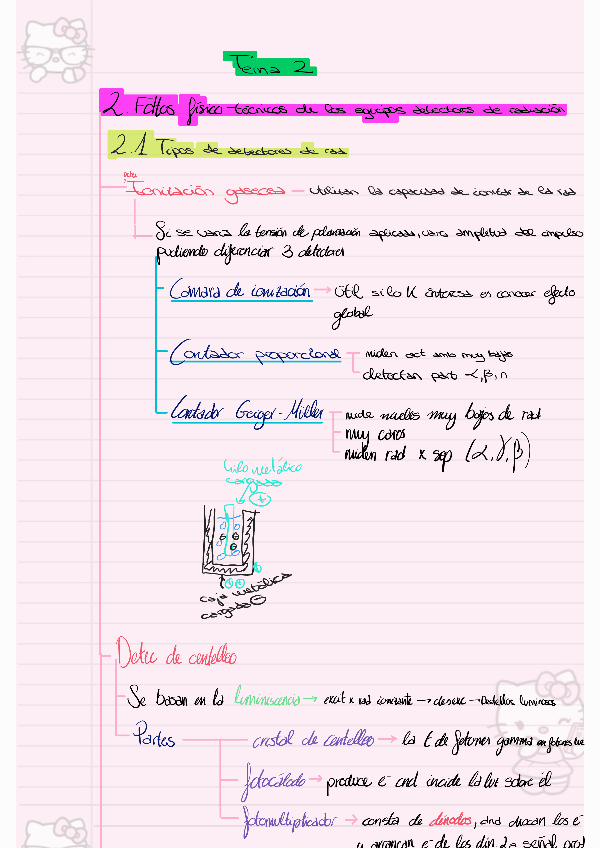 Tema 2
2. Fdtos físico-técnicos de los equipos detectores de radiación
2.1 Tipos de detectores de rad
Detec
Ionización gaseosa — utilizan la capacidad de ionizar de la rad
Si se varía la tensión de polarización aplicada, varía amplitud del impulso
pudiendo diferenciar 3 detectores
Cámara de ionización → útil si lo K interesa es conocer efecto
global
Contador proporcional — miden act amb muy bajas
detectan part α, β, n
Contador Geiger-Müller — mide niveles muy bajos de rad
muy caros
miden rad x sep (α, γ, β)
hilo metálico
cargado
+
caja metálica
cargada -
Detec de centelleo
Se basan en la luminiscencia → excit x rad ionizante → desexc → Destellos luminosos
Partes — cristal de centelleo → la t de fotones gamma en fotones luz
fotocátodo → produce e- cnd incide la luz sobre él
fotomultiplicador → consta de dínodos, cnd chocan los e-
y arrancan e- de los din 2